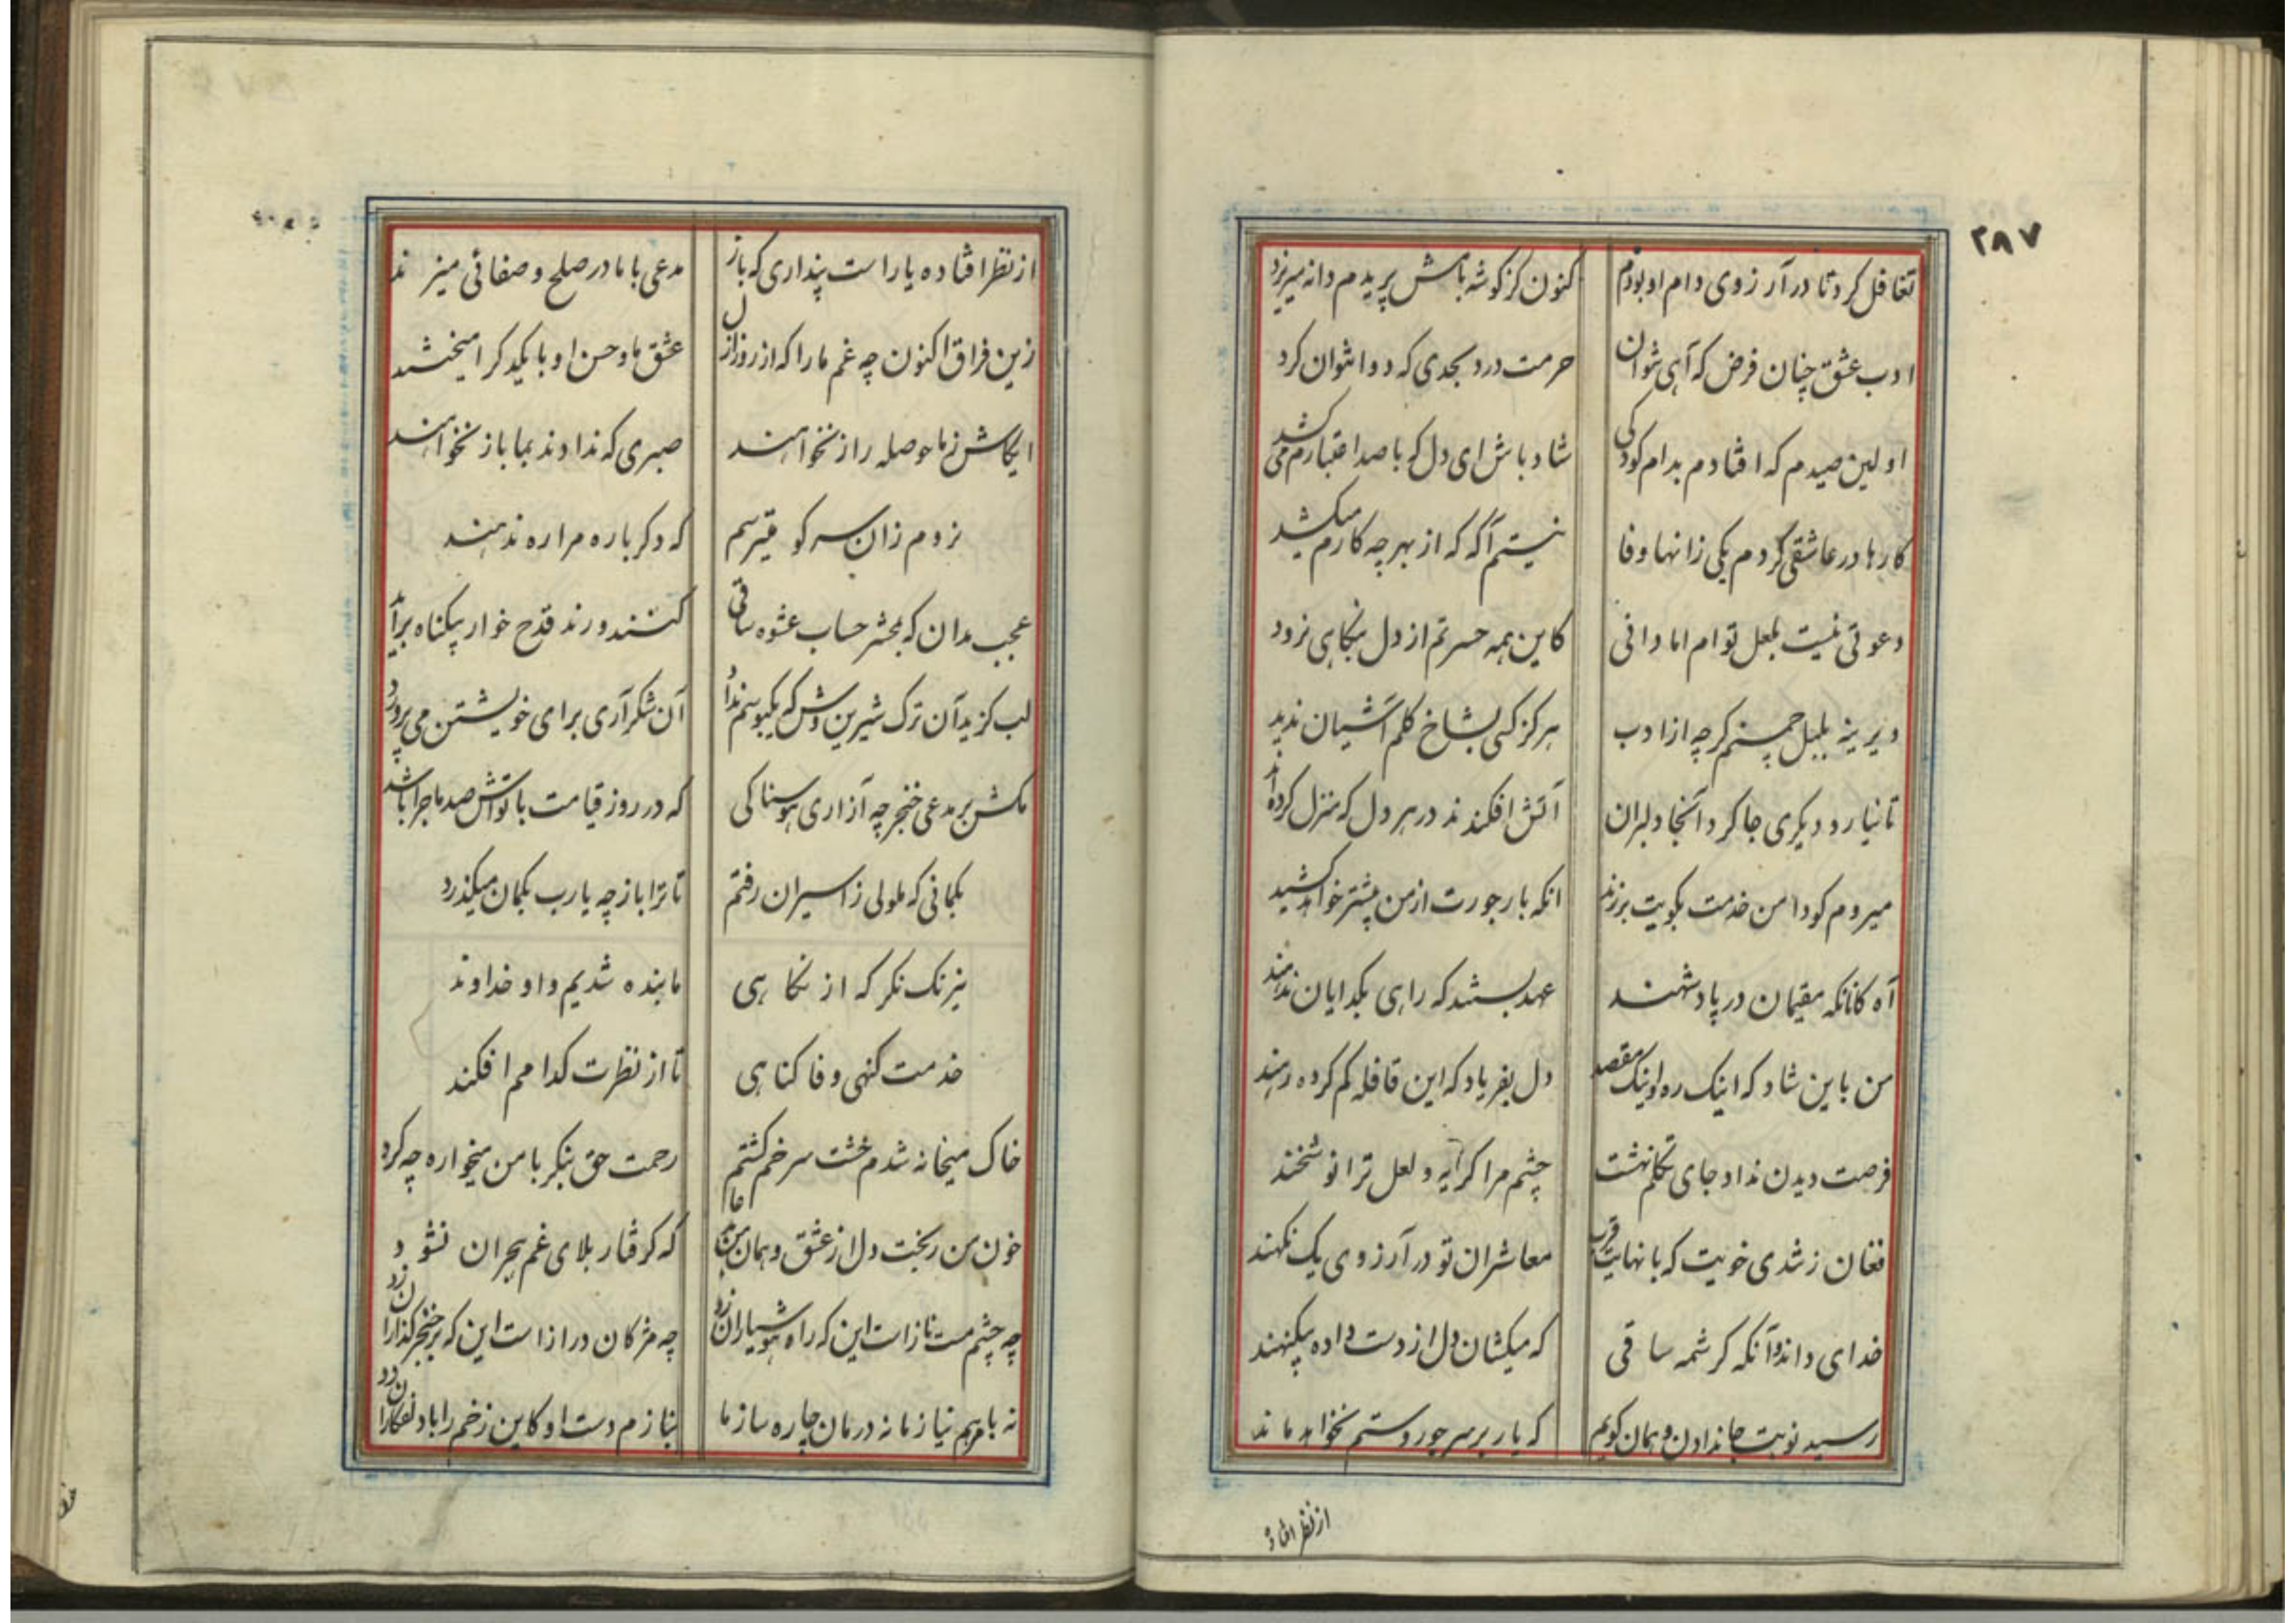 ۲۸۷
تغافل کرد تا در آرزوی دام او بودم کنون کز گوشه بامش پریدم دانه میریزد
ادب عشق چنان فرض که آهی نتوان حرمت درد بحدی که دوا نتوان کرد
اولین صیدم که افتادم بدام کودکی شاد باش ای دل که با صد اعتبارم می کشد
کارها در عاشقی کردم یکی زانها وفا نیستم آگه که از بهر چه کارم میکشد
دعوتی نیست بلعل توام اما دانی کاین همه حسرتم از دل بنگاهی نرود
دیرینه بلبل چمنم گرچه از ادب هرگز کسی بشاخ گلم آشیان ندید
تا نیارد دیگری جا کرد آنجا دلبران آتش افکندند در هر دل که منزل کرده اند
میروم کو دامن خدمت بکویت بر زند انکه بار جورت از من بیشتر خواهد کشید
آه کانانکه مقیمان در پادشهند عهد بستند که راهی بگدایان ندهند
من باین شاد که اینک ره و اینک مقصد دل بفریاد که این قافله گم کرده رهند
فرصت دیدن نداد جای تکلم نهشت چشم مرا گریه و لعل ترا نوشخند
فغان ز تندی خویت که با نهایت قرب معاشران تو در آرزوی یک نگهند
خدای داند و آنکه کرشمه ساقی که میکشان دل از دست داده بیگنهند
رسید نوبت جاندادن و همان گویم که یار بر سر جور و ستم نخواهد ماند
از نظر افتاد
از نظر افتاده یار است پنداری که باز مدعی با ما در صلح و صفائی میزند
زین فراق اکنون چه غم ما را که از روز ازل عشق ما و حسن او با یکدگر آمیختند
ایکاش ز ما حوصله راز نخواهند صبری که ندادند بما باز نخواهند
نروم زان سر کو میترسم که دگرباره مرا ره ندهند
عجب مدان که بمحشر حساب عشوه ساقی کنند و رند قدح خوار بیگناه برآید
لب گزید آن ترک شیرین وش که یکبوسم نداد آن شکر آری برای خویشتن می پرورد
مکش بر مدعی خنجر چه آزاری هوسناکی که در روز قیامت با تواش صد ماجرا باشد
بگمانی که ملولی ز اسیران رفتم تا ترا باز چه یارب بگمان میگذرد
نیرنگ نگر که از نگاهی ما بنده شدیم و او خداوند
خدمت گنهی وفا گناهی تا از نظرت کدامم افکند
خاک میخانه شدم خشت سر خم گشتم رحمت حق بنگر با من میخواره چه کرد
خون من ریخت دل از عشق و همان که گرفتار بلای غم هجران نشود
چه چشم مست ناز است این که راه هوشیاران زد چه مژگان دراز است این که بر خنجر گذاران زد
نه با مرهم نیاز ما نه درمان چاره ساز ما بنازم دست او کاین زخم را با دلفگاران زد